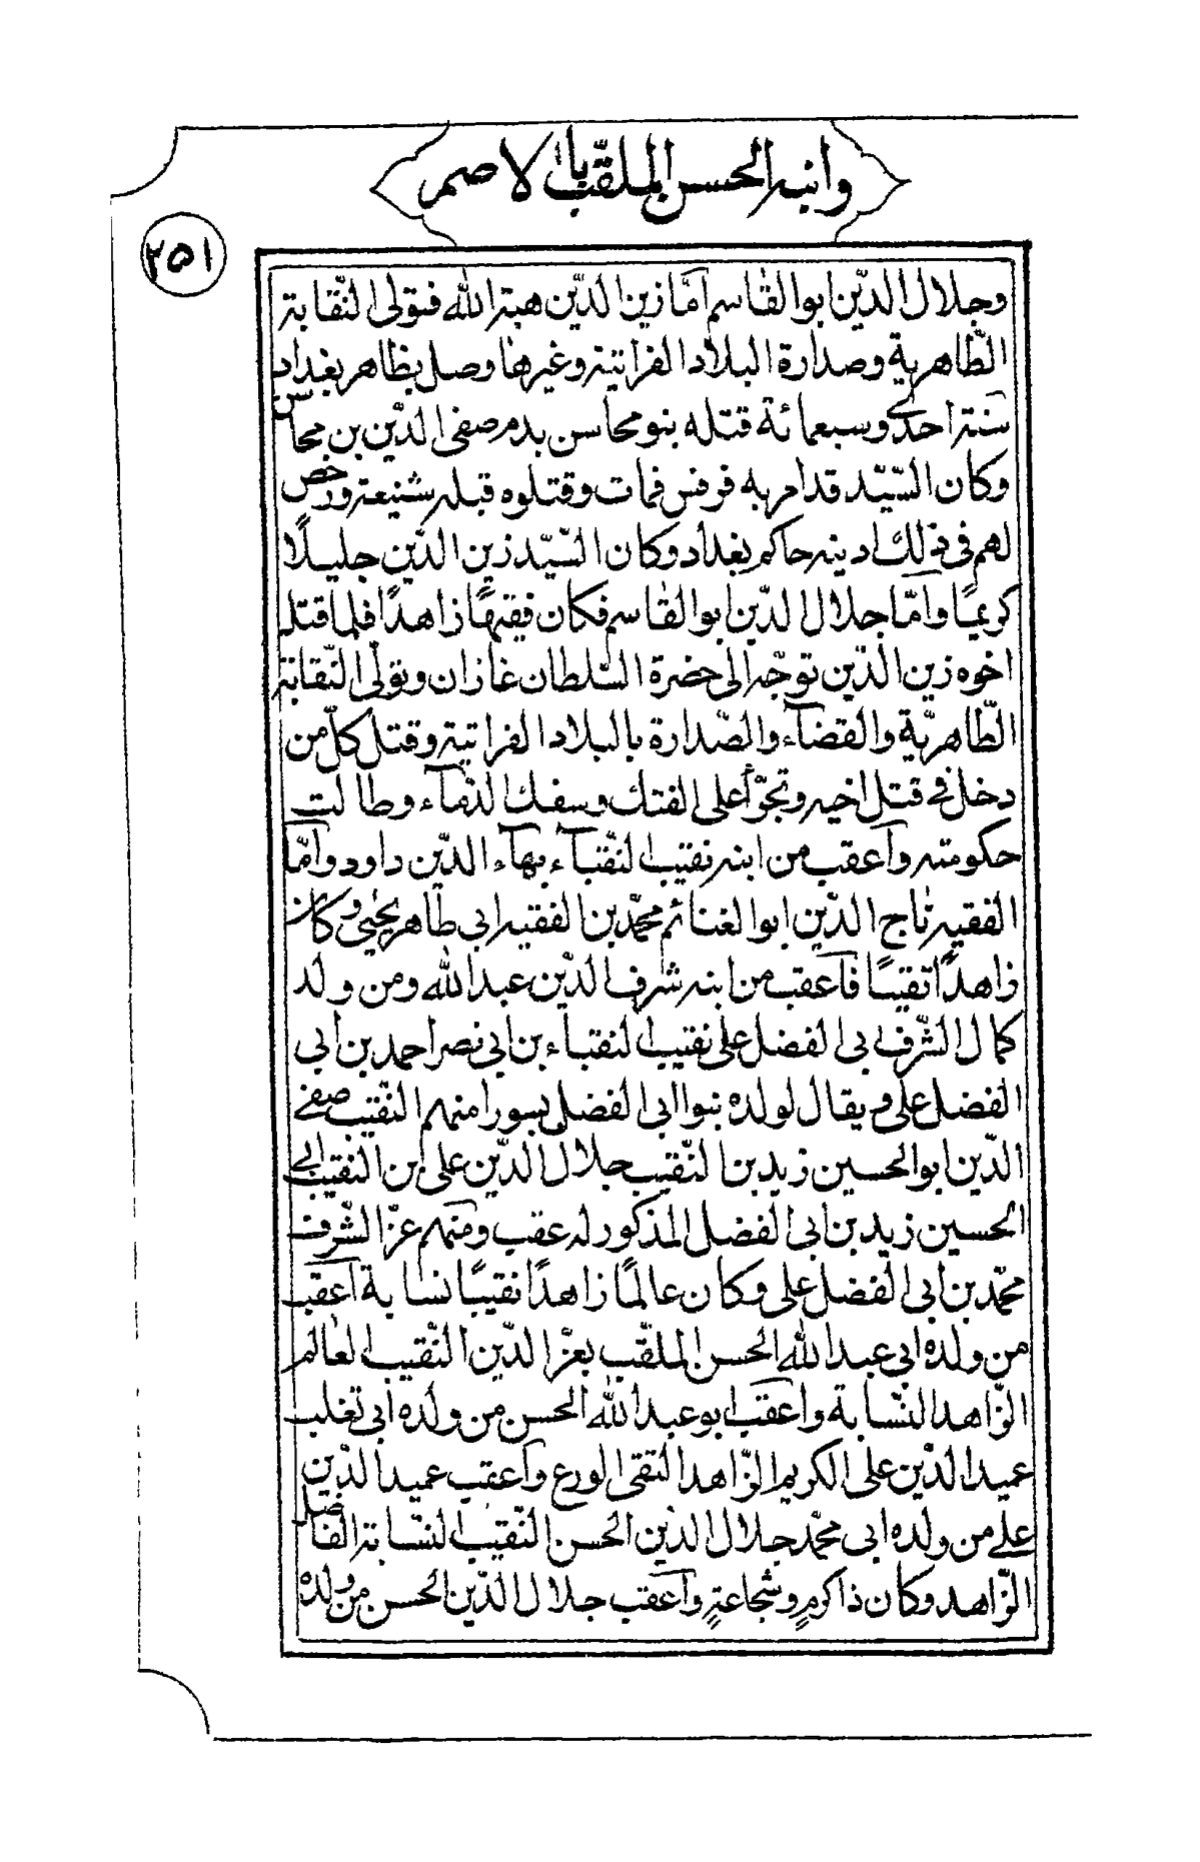 وابنه الحسن الملقّب بالاصم
٢٥١
وجلال الدّين ابو القاسم امّا زين الدّين هبة الله فتولى النّقابة
الطّاهرية وصدارة البلاد الفراتية وغيرها وصل بظاهر بغداد
سنة احدى وسبعمائة قتله بنو محاسن بدم صفى الدّين بن محاسن
وكان السّيّد قد امر به فرفس فمات وقتلوه قبله شنيعة ورخص
لهم فى ذلك ادينه حاكم بغداد وكان السّيّد زين الدّين جليلًا
كريمًا وامّا جلال الدّين ابو القاسم فكان فقيهًا زاهدًا فلما قتل
اخوه زين الدّين توجّه الى حضرة السّلطان غازان وتولّى النّقابة
الطّاهريّة والقضآء والصّدارة بالبلاد الفراتية وقتل كلّ من
دخل فى قتل اخيه وتجرّأ على الفتك وسفك الدّمآء وطالت
حكومته وآعقب من ابنه نقيب النّقبآء بهآء الدّين داود وآمّا
الفقيه تاج الدّين ابو الغنائم محمّد بن الفقيه ابى طاهر يحيى وكان
زاهدًا تقيًا فآعقب من ابنه شرف الدّين عبد الله ومن ولد
كمال الشّرف ابى الفضل على نقيب النقباء بن ابى نصر احمد بن ابى
الفضل على ويقال لولده بنوا ابى الفضل بسورا منهم النّقيب صفى
الدّين ابو الحسين زيد بن النّقيب جلال الدّين على ابن النقيب ابى
الحسين زيد بن ابى الفضل المذكور له عقب ومنهم عزّ الشّرف
محمّد بن ابى الفضل على وكان عالمًا زاهدًا نقيبًا نسابة آعقب
من ولده ابى عبد الله الحسن الملقّب بعزّ الدّين النّقيب العالم
الزّاهد النّسّابة وآعقب ابو عبد الله الحسن من ولده ابى تغلب
عميد الدّين على الكريم الزّاهد التقى الورع وآعقب عميد الدّين
على من ولده ابى محمّد جلال الدّين الحسن النّقيب النسّابة الفاضل
الزّاهد وكان ذا كرمٍ وشجاعةٍ وآعقب جلال الدّين الحسن من ولده